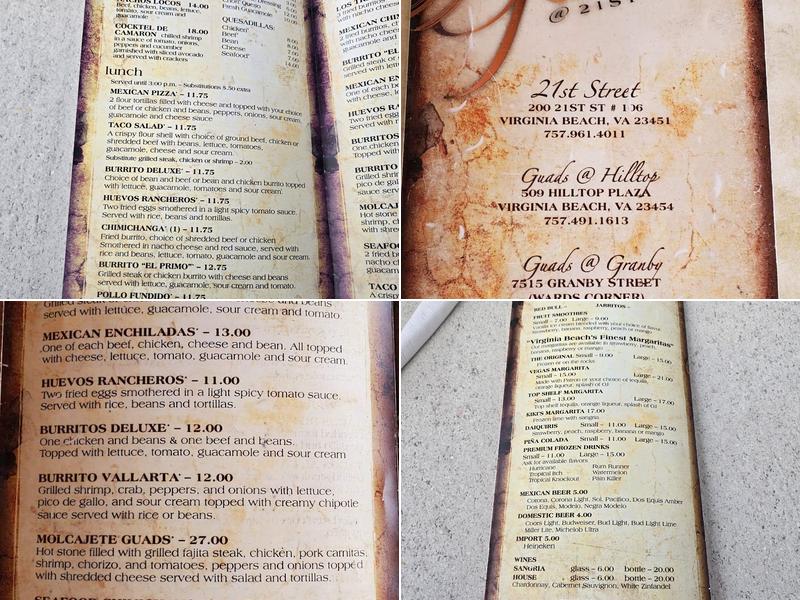 NACHOS LOCOS 14.00
Beef, chicken, beans, lettuce,
tomato, sour cream and
guacamole
COCKTEL DE
CAMARON 18.00
chilled shrimp
in a sauce of tomato, onions,
peppers and cucumber
garnished with sliced avocado
and served with crackers
QUESADILLAS:
Chicken
Beef
Bean
Cheese
Seafood
lunch
Served until 3:00 p.m. – Substitutions $.50 extra
MEXICAN PIZZA* – 11.75
2 flour tortillas filled with cheese and topped with your choice
of beef or chicken and beans, peppers, onions, sour cream,
guacamole and cheese sauce
TACO SALAD* – 11.75
A crispy flour shell with choice of ground beef, chicken or
shredded beef with beans, lettuce, tomatoes,
guacamole, cheese and sour cream.
Substitute grilled steak, chicken or shrimp – 2.00
BURRITO DELUXE* – 11.75
Choice of bean and beef or bean and chicken burrito topped
with lettuce, guacamole, tomatoes and sour cream.
HUEVOS RANCHEROS* – 11.75
Two fried eggs smothered in a light spicy tomato sauce.
Served with rice, beans and tortillas.
CHIMICHANGA* (1) – 11.75
Fried burrito, choice of shredded beef or chicken
Smothered in nacho cheese and red sauce, served with
rice and beans, lettuce, tomato, guacamole and sour cream.
BURRITO "EL PRIMO"* – 12.75
Grilled steak or chicken burrito with cheese and beans
served with lettuce, guacamole, sour cream and tomato.
POLLO FUNDIDO* – 11.75
@ 21ST
21st Street
200 21ST ST # 106
VIRGINIA BEACH, VA 23451
757.961.4011
Guads @ Hilltop
509 HILLTOP PLAZA
VIRGINIA BEACH, VA 23454
757.491.1613
Guads @ Granby
7515 GRANBY STREET
(WARDS CORNER)
served with lettuce, guacamole, sour cream and tomato.
MEXICAN ENCHILADAS* – 13.00
One of each beef, chicken, cheese and bean. All topped
with cheese, lettuce, tomato, guacamole and sour cream.
HUEVOS RANCHEROS* – 11.00
Two fried eggs smothered in a light spicy tomato sauce.
Served with rice, beans and tortillas.
BURRITOS DELUXE* – 12.00
One chicken and beans & one beef and beans.
Topped with lettuce, tomato, guacamole and sour cream
BURRITO VALLARTA* – 12.00
Grilled shrimp, crab, peppers, and onions with lettuce,
pico de gallo, and sour cream topped with creamy chipotle
sauce served with rice or beans.
MOLCAJETE GUADS* – 27.00
Hot stone filled with grilled fajita steak, chicken, pork carnitas,
shrimp, chorizo, and tomatoes, peppers and onions topped
with shredded cheese served with salad and tortillas.
RED BULL – JARRITOS –
FRUIT SMOOTHIES
Small – 7.00 Large – 9.00
Vanilla ice cream blended with your choice of flavor.
Strawberry, banana, raspberry, peach or mango
"Virginia Beach's Finest Margaritas"
Our margaritas are available in strawberry, peach,
banana, raspberry or mango
THE ORIGINAL Small – 9.00 Large – 15.00
Frozen or on the rocks
VEGAS MARGARITA
Small – 15.00 Large – 21.00
Made with Patron or your choice of tequila,
orange liqueur, splash of OJ
TOP SHELF MARGARITA
Small – 13.00 Large – 17.00
Top shelf tequila, orange liqueur, splash of OJ
KIKI'S MARGARITA 17.00
Frozen lime with sangria
DAIQUIRIS Small – 11.00 Large – 15.00
Strawberry, peach, raspberry, banana or mango
PIÑA COLADA Small – 11.00 Large – 15.00
PREMIUM FROZEN DRINKS
Small – 11.00 Large – 15.00
Ask for available flavors
Hurricane Rum Runner
Tropical Itch Watermelon
Tropical Knockout Pain Killer
MEXICAN BEER 5.00
Corona, Corona Light, Sol, Pacifico, Dos Equis Amber
Dos Equis, Modelo, Negra Modelo
DOMESTIC BEER 4.00
Coors Light, Budweiser, Bud Light, Bud Light Lime
Miller Lite, Michelob Ultra
IMPORT 5.00
Heineken
WINES
SANGRIA glass – 6.00 bottle – 20.00
HOUSE glass – 6.00 bottle – 20.00
Chardonnay, Cabernet Sauvignon, White Zinfandel